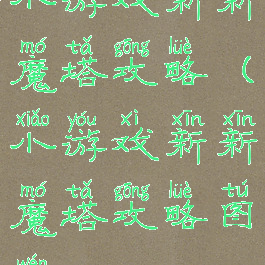 mó tǎ gōng lüè
魔塔攻略（
xiǎo yóu xì xīn xīn
小游戏新新
mó tǎ gōng lüè tú
魔塔攻略图
wén